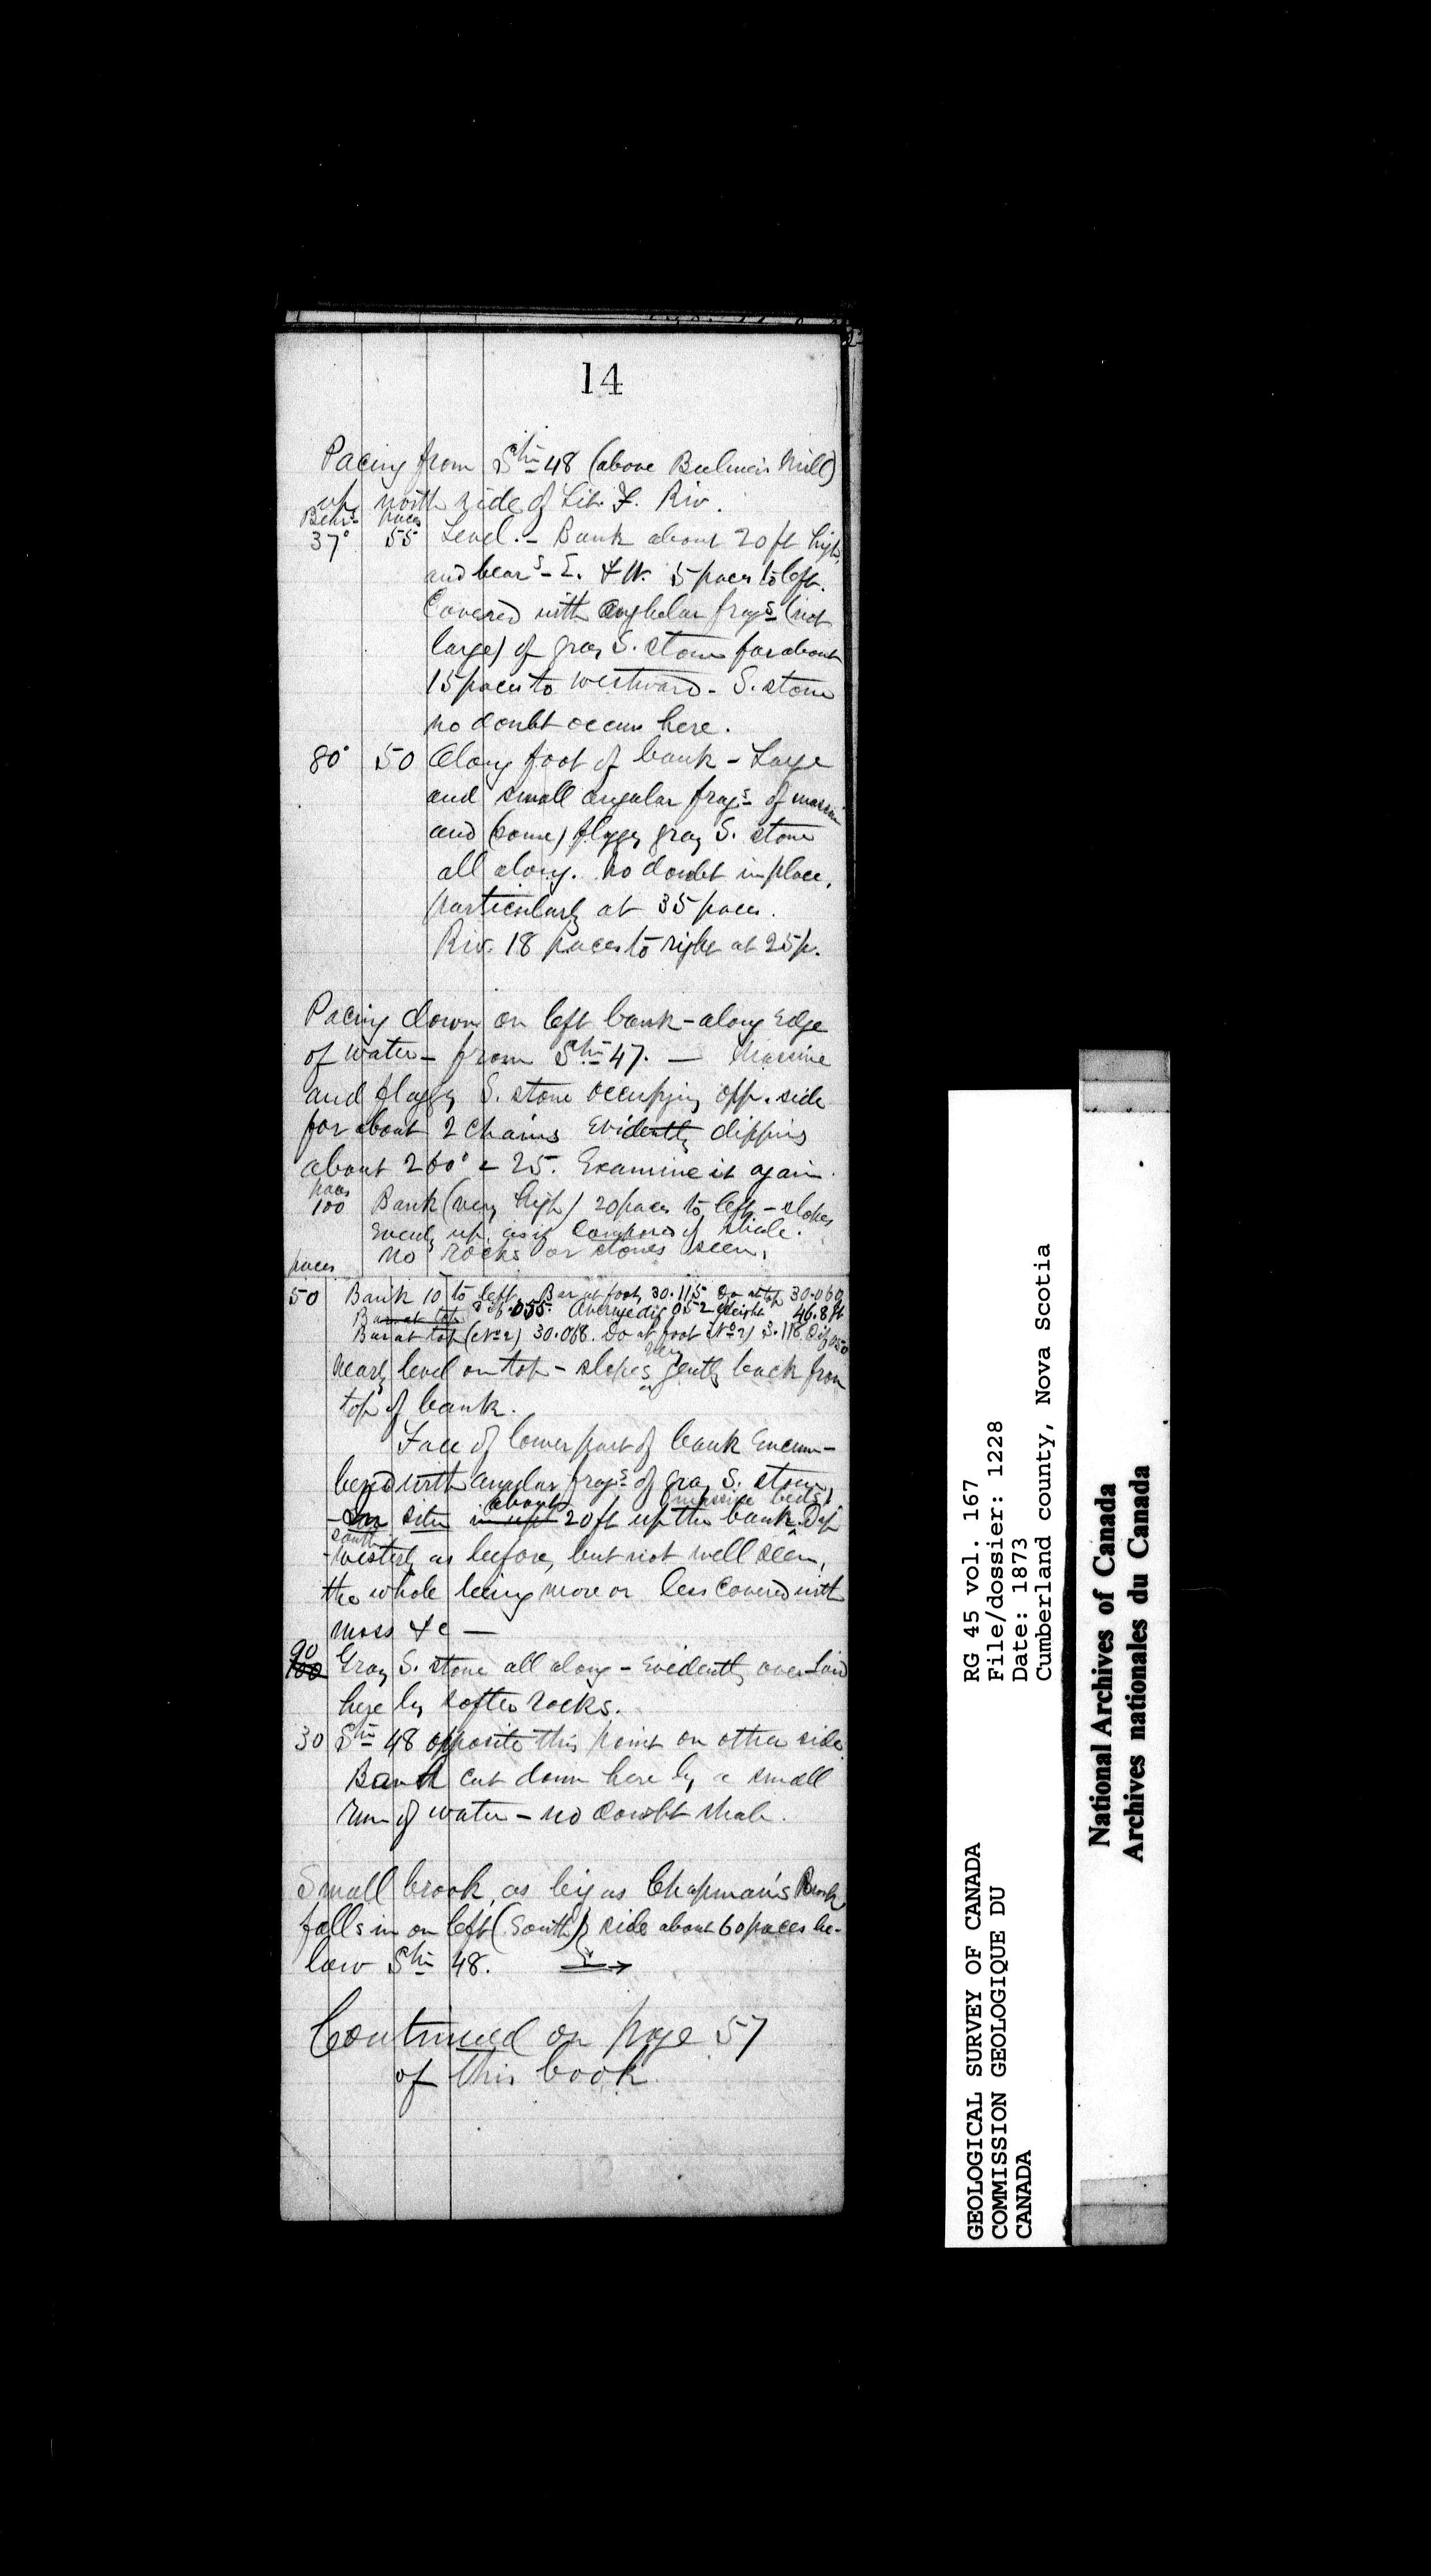 14
Pacing from Stn 48 (above Bulmer's Mill)
up north side of Lit. F. Riv.
Bears paces
37° 55 Level. - Bank about 20 ft high,
and bears - E. & W. 5 paces to left.
Covered with angular frags (not
large) of gray S. stone for about
15 paces to westward - S. stone
no doubt occurs here.
80° 50 Along foot of bank - Large
and small angular frags of massive
and (some) flaggy gray S. stone
all along. No doubt in place,
particularly at 35 paces.
Riv. 18 paces to right at 25 p.
Pacing down on left bank - along edge
of water - from Stn 47. — Massive
and flaggy S. stone occupying opp. side
for about 2 chains Evidently dipping
about 260° < 25. Examine it again.
paces
100 Bank (very high) 20 paces to left - slopes
evenly up, as if composed of shale.
No rocks or stones seen.
paces
50 Bank 10 to left. Bar at foot, 30.115 Do at top 30.060
Bar at top Dif .055. Average dif 052 Height 46.8 ft
Bar at top (No 2) 30.068. Do at foot (No 2) 3.118 Dif 050
Nearly level on top - slopes very gently back from
top of bank.
Face of lower part of bank encum-
bered with angular frags of gray S. stone,
- In situ about 20 ft up the bank (massive beds). Dip
south
- westerly as before, but not well seen,
the whole being more or less covered with
moss &c —
90
100 Gray S. stone all along - Evidently overlaid
here by softer rocks.
30 Stn 48 opposite this point on other side.
Bank cut down here by a small
run of water - no doubt shale.
Small brook, as big as Chapman's Brook
falls in on left (South) side about 60 paces be-
low Stn 48.
Continued on page 57
of this book
GEOLOGICAL SURVEY OF CANADA
COMMISSION GEOLOGIQUE DU
CANADA
RG 45 vol. 167
File/dossier: 1228
Date: 1873
Cumberland county, Nova Scotia
National Archives of Canada
Archives nationales du Canada